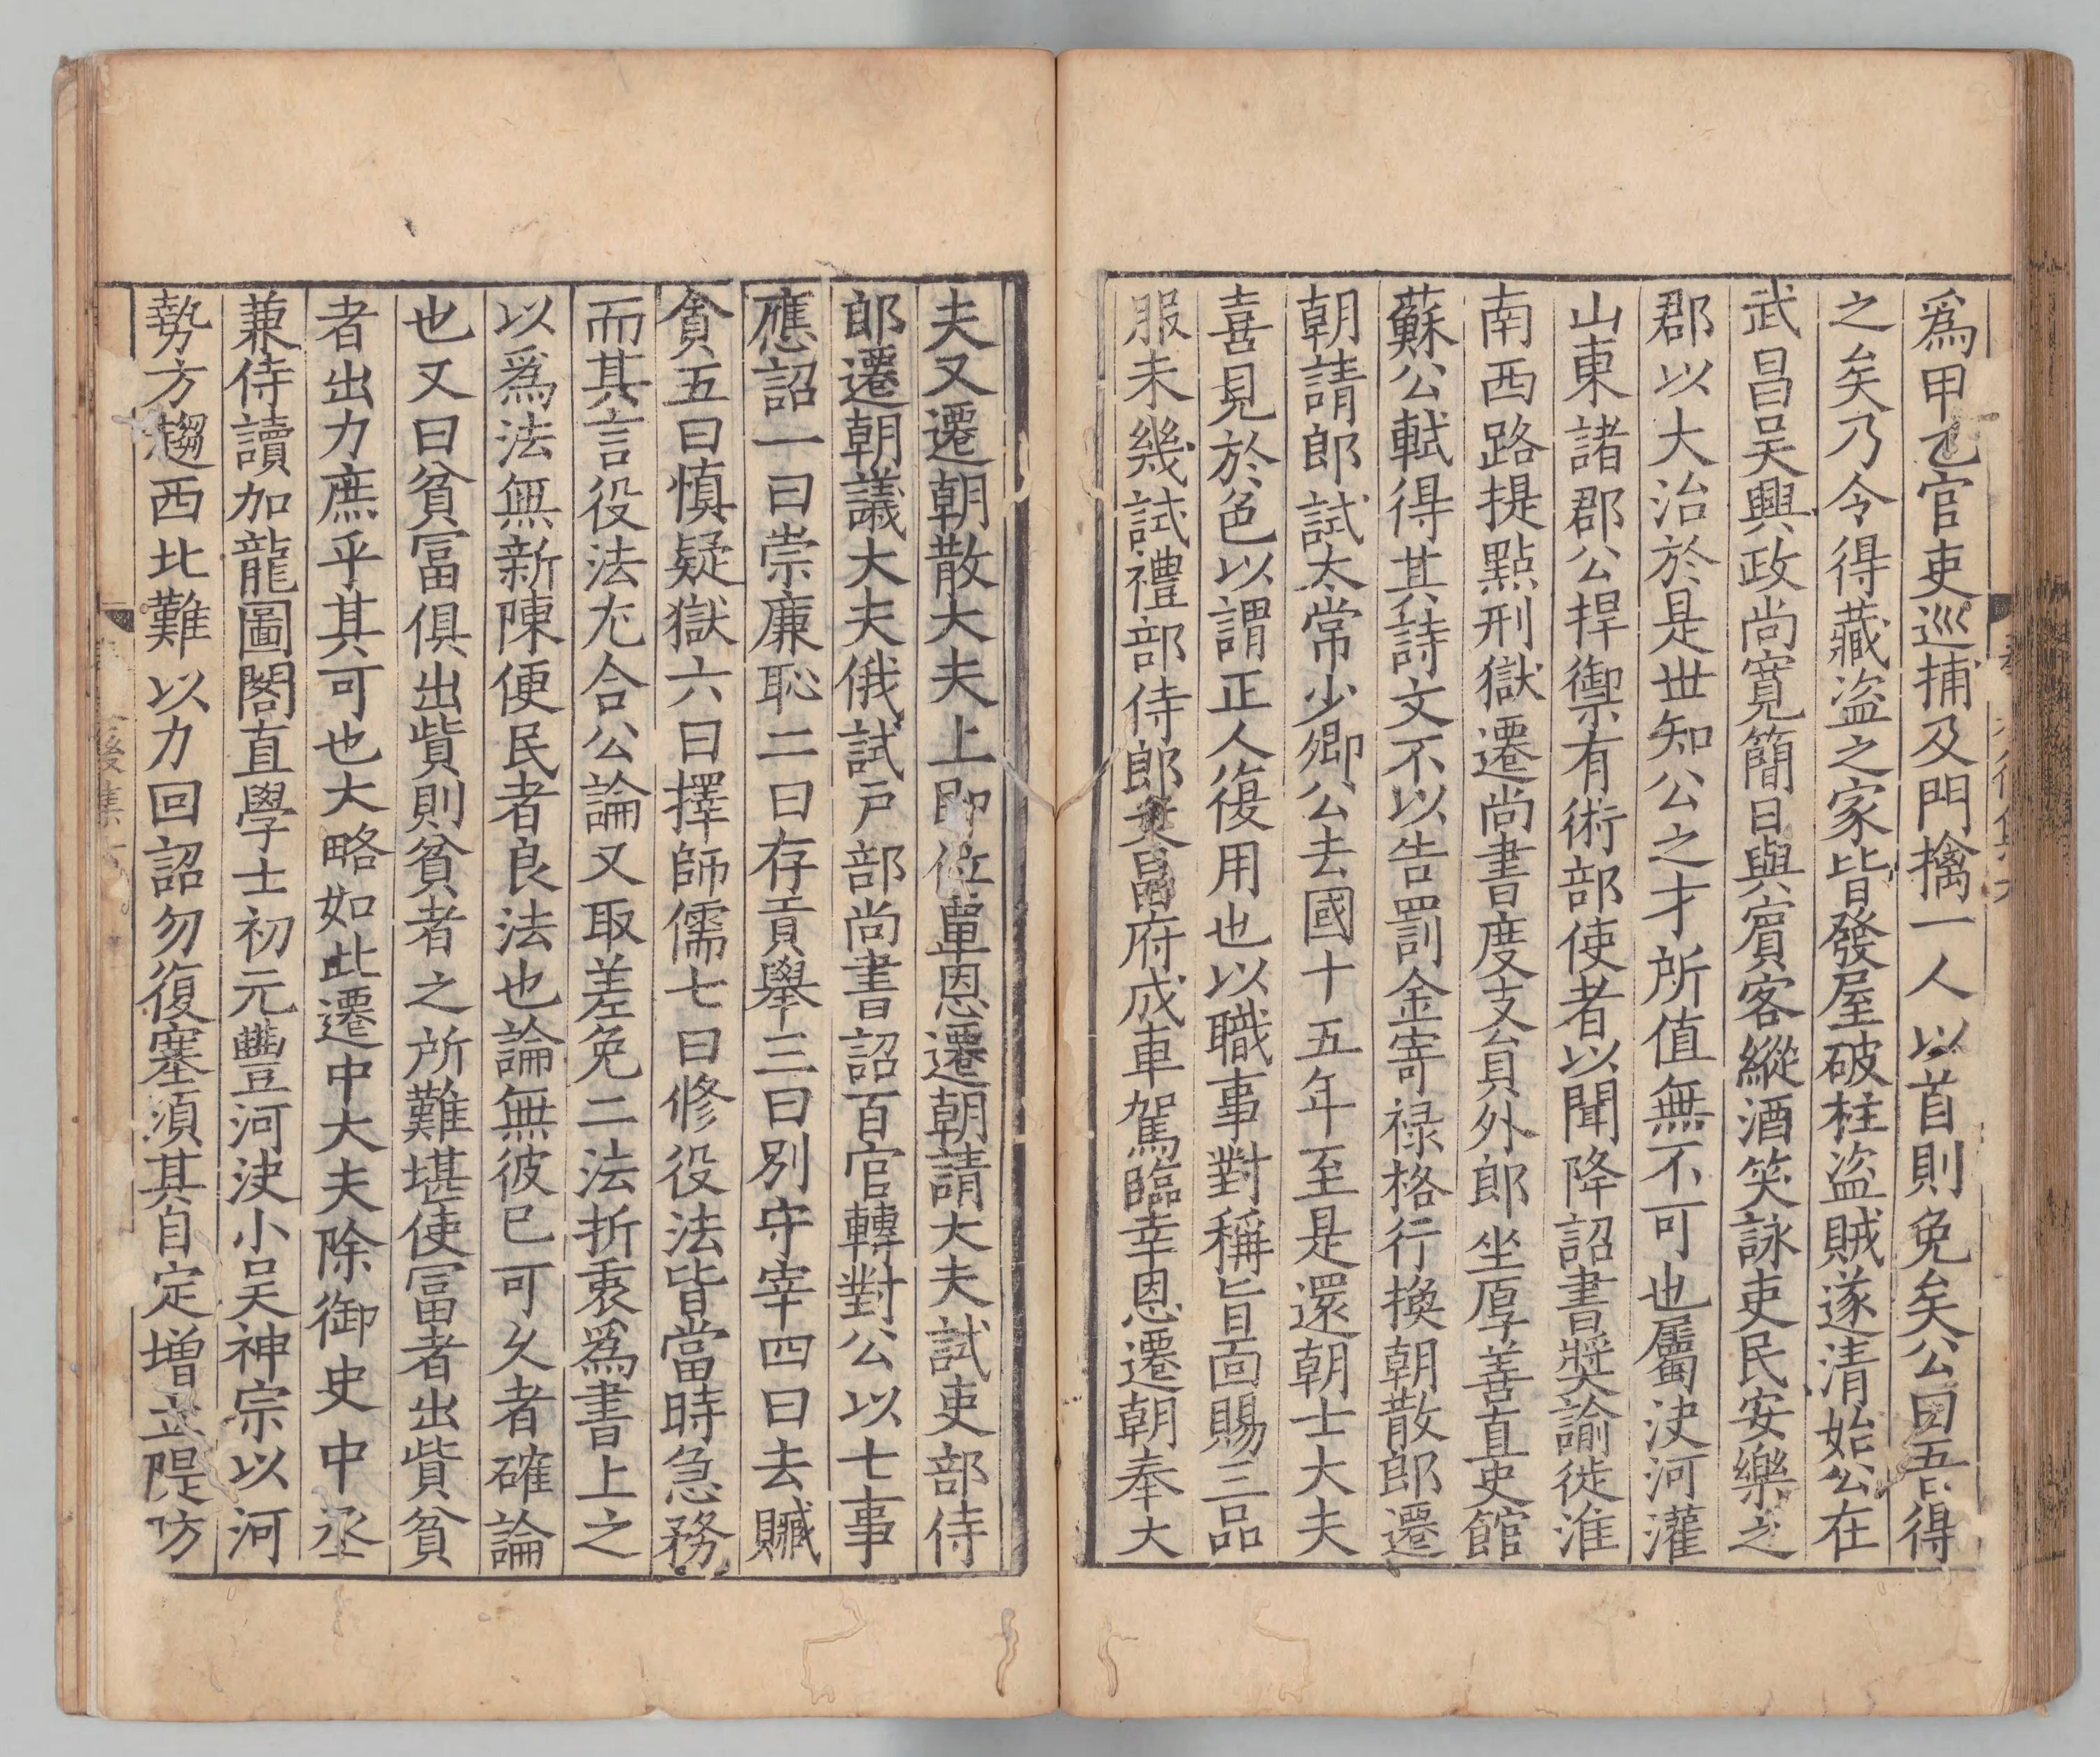 爲甲乙官吏巡捕及門擒一人以首則免矣公曰吾得
之矣乃令得藏盜之家皆發屋破柱盜賊遂清始公在
武昌吴興政尚寛簡日與賔客縱酒笑詠吏民安樂之
郡以大治於是丗知公之才所值無不可也屬决河灌
山東諸郡公捍禦有術部使者以聞降詔書奬諭徙淮
南西路提㸃刑獄遷尚書度支負外郎坐厚善直史館
蘇公軾得其詩文不以告罰金寄禄格行換朝散郎遷
朝請郎試太常少卿公去國十五年至是還朝士大夫
喜見於色以謂正人復用也以職事對稱旨面賜三品
服未幾試禮部侍郎奏昌府成車駕臨幸恩遷朝奉大
夫又遷朝散大夫上即位覃恩遷朝請大夫試吏部侍
郎遷朝議大夫俄試戸部尚書詔百官轉對公以七事
應詔一曰崇廉恥二曰存貢舉三曰別守宰四曰去贓
貪五曰慎疑獄六曰擇師儒七曰修役法皆當時急務
而其言役法尢合公論又取差免二法折衷爲書上之
以爲法無新陳便民者良法也論無彼已可乆者確論
也又曰貧冨俱出貲則貧者之所難堪使冨者出貲貧
者出力庶乎其可也大略如此遷中大夫除御史中丞
兼侍讀加龍圖閣直學士初元豐河决小吴神宗以河
勢方趨西北難以力回詔勿復塞湏其自定增立隄防